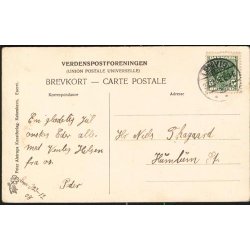 VERDENSPOSTFORENINGEN
(UNION POSTALE UNIVERSELLE)
BREVKORT — CARTE POSTALE
Korrespondance
Adresse
En glædelig Jul
ønskes Eder alle
med Venlig Hilsen
fra os.
Peder
Hr Niels Thagaard
Humlum St.
Peter Alstrups Kunstforlag, København. Eneret.